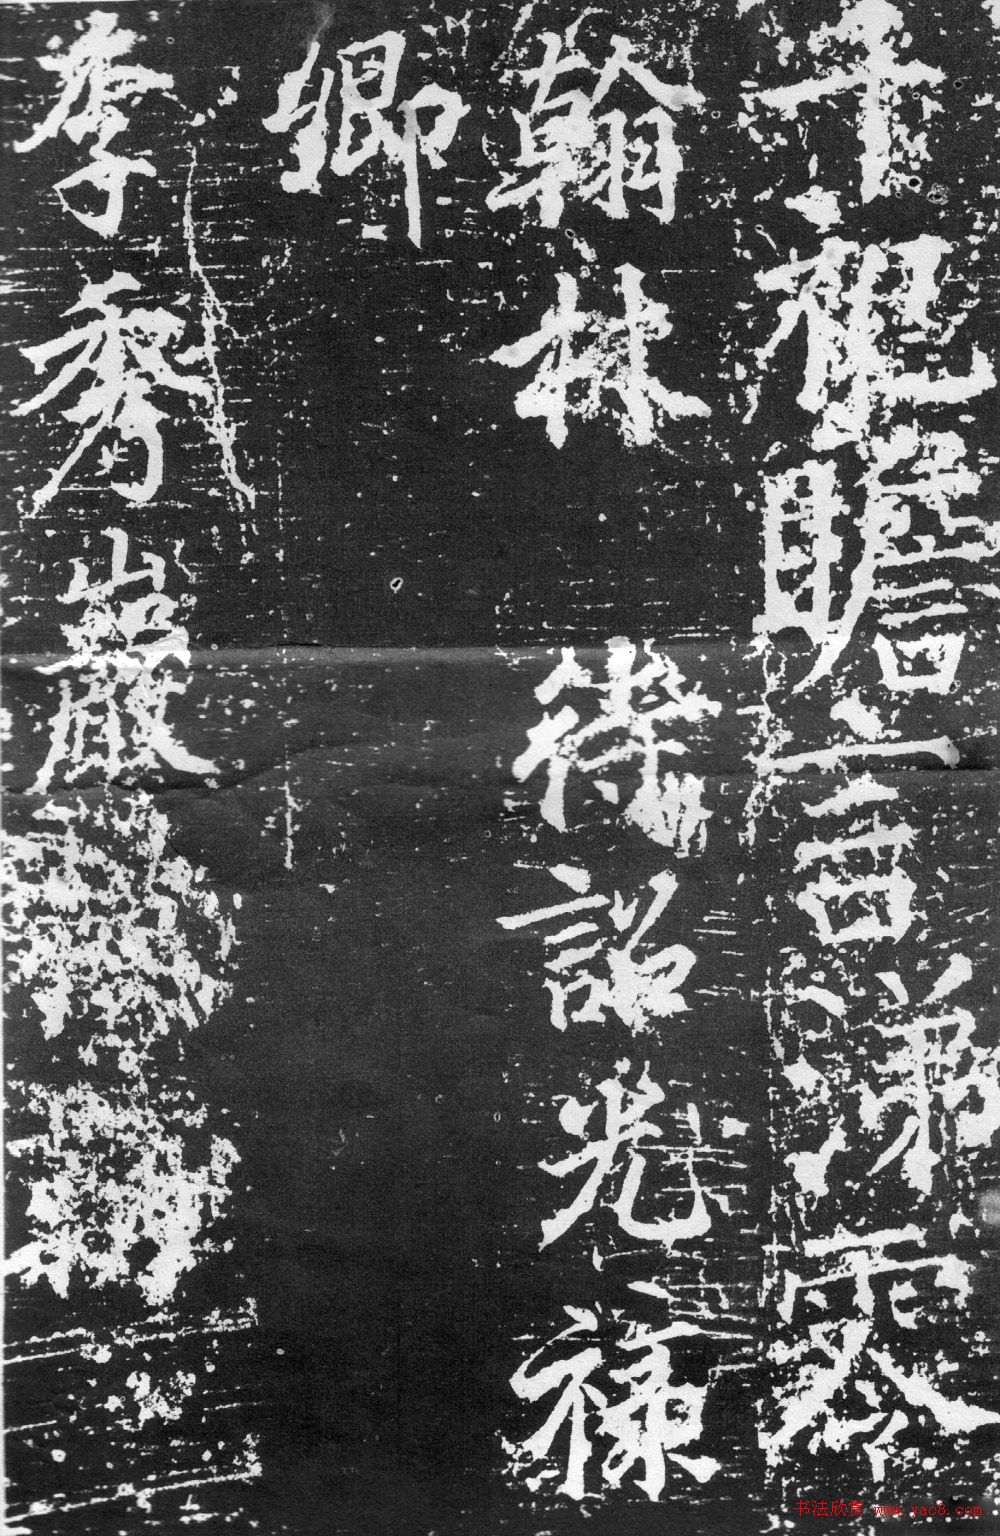 千祀瞻言涕零
翰林待詔光祿
卿
李秀巖
书法欣赏 www.yac8.com